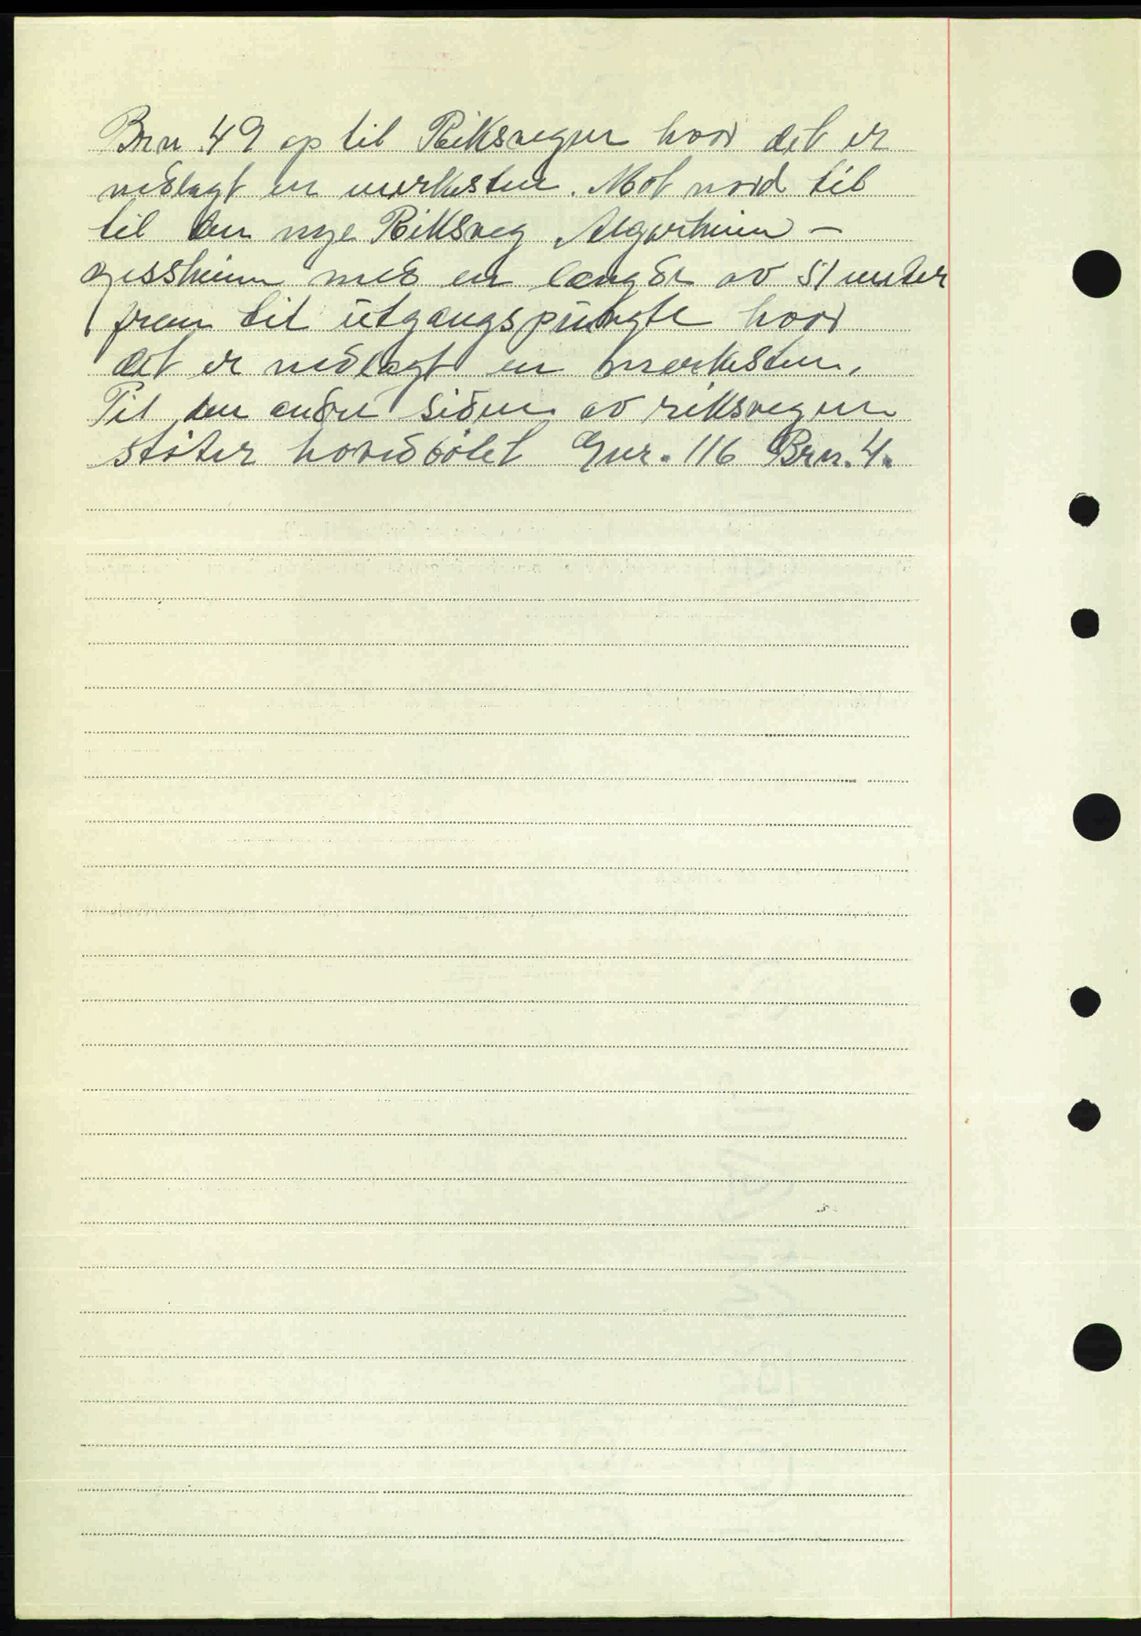 Brn. 49 op til Riksvegen hvor det er
nedlagt en merkesten. Mot nord til
til den nye Riksveg Algarheim –
Gjessheim med en længde av 51 meter
frem til utgangspungte hvor
det er nedlagt en merkesten.
Til den andre siden av riksvegen
støter hovedbølet Gnr. 116 Brn. 4.